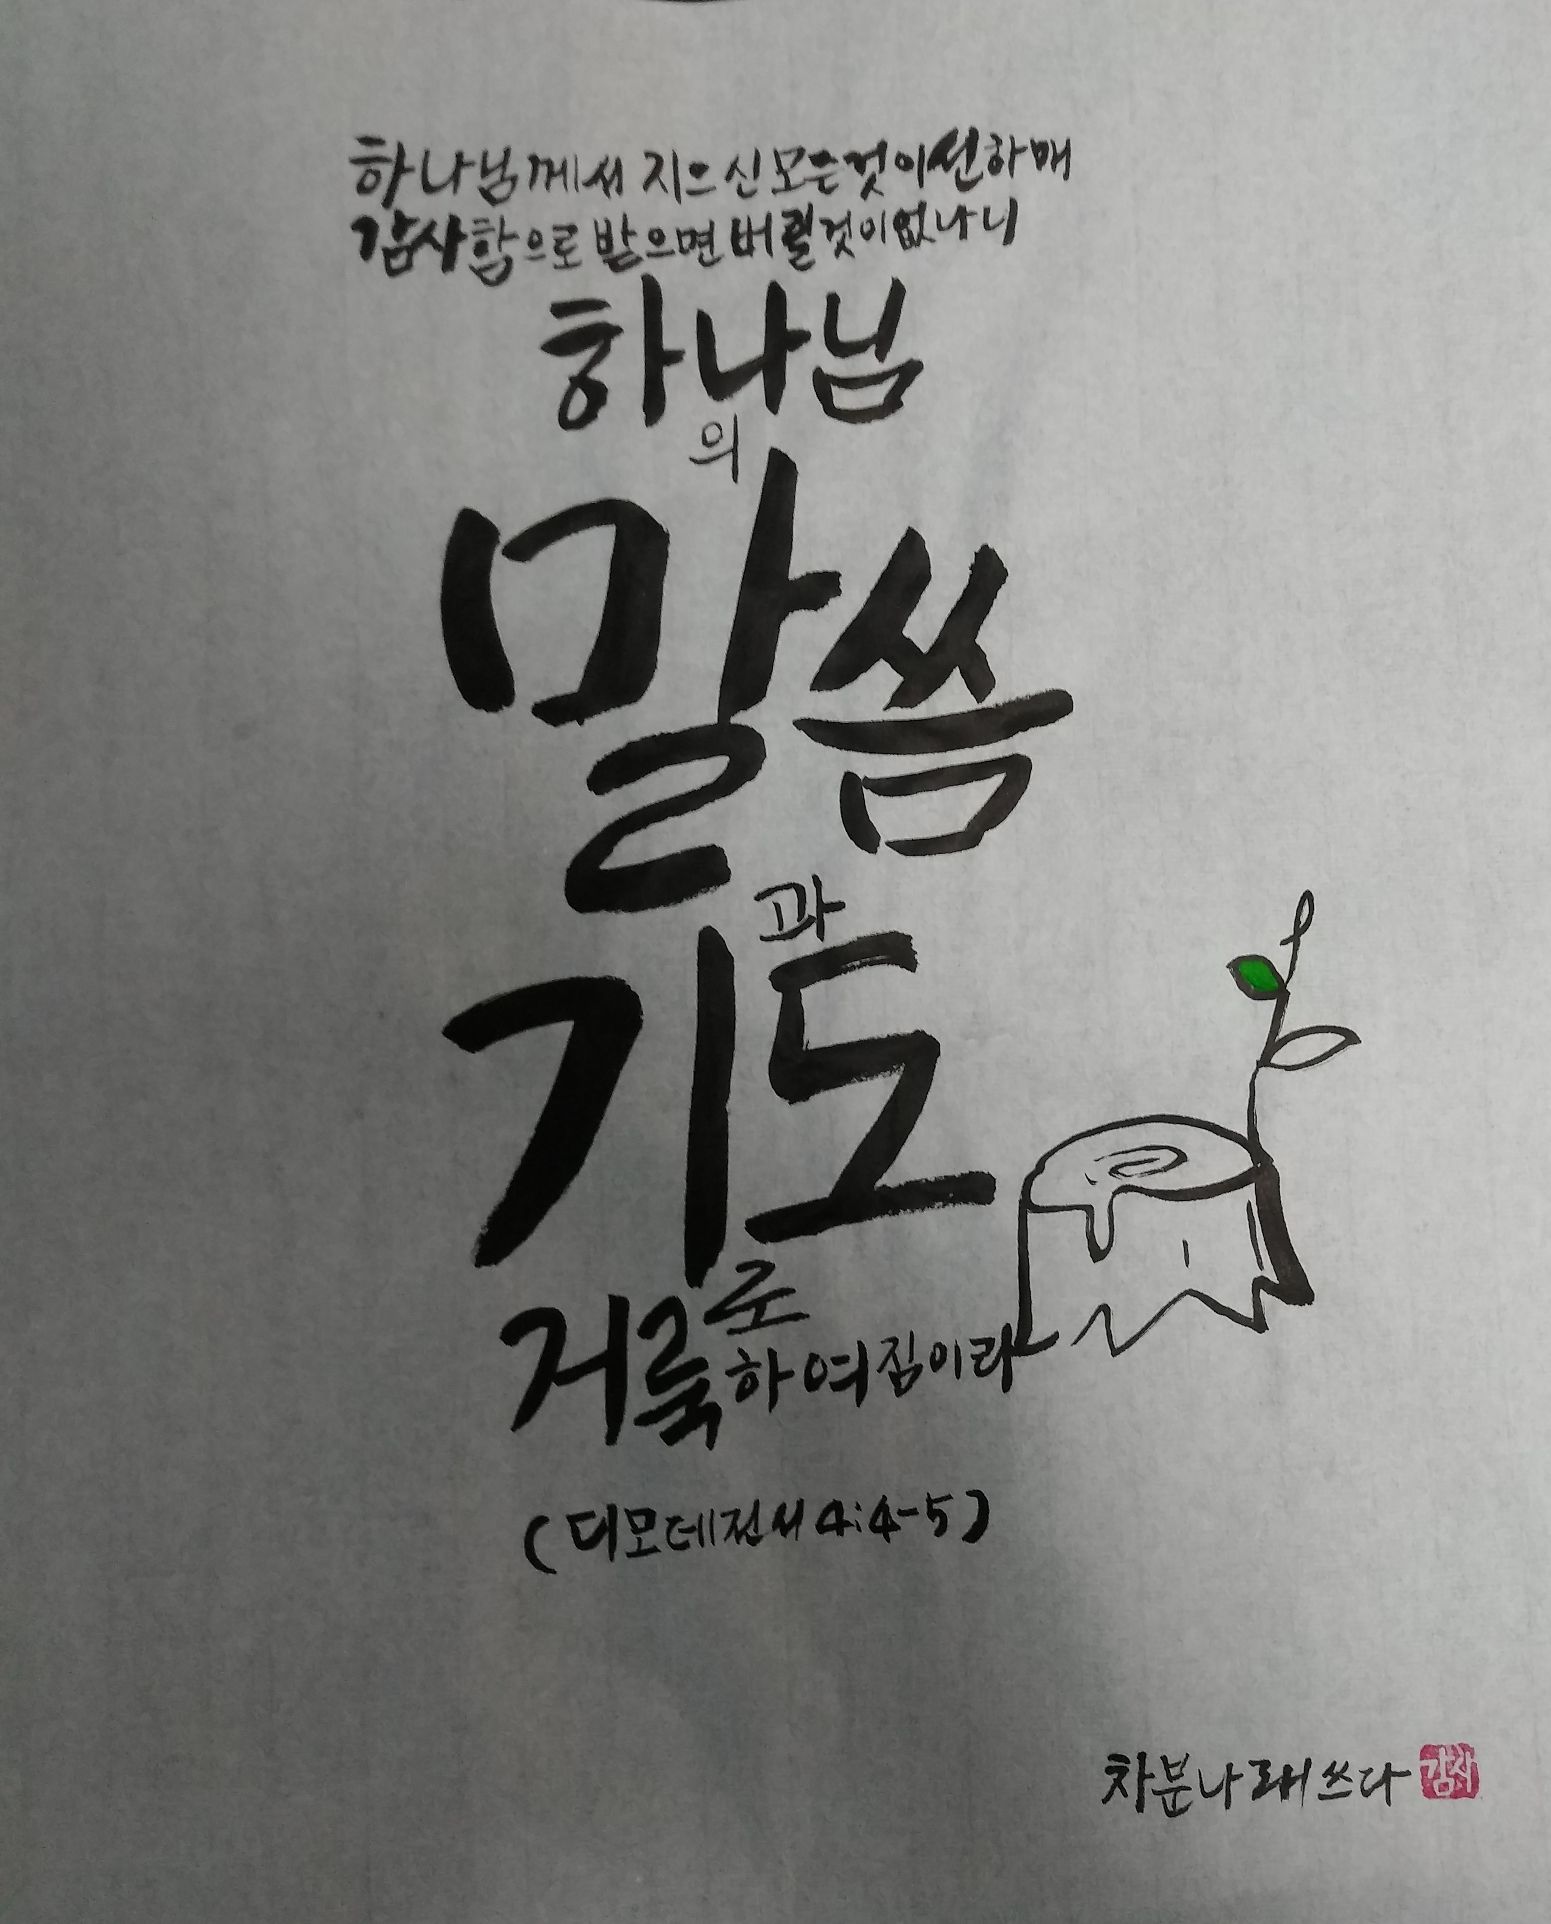 하나님께서 지으신 모든것이 선하매
감사함으로 받으면 버릴것이 없나니
하나님
의
말씀
과
기도
로
거룩하여짐이라
(디모데전서 4:4-5)
차분나래쓰다 감사